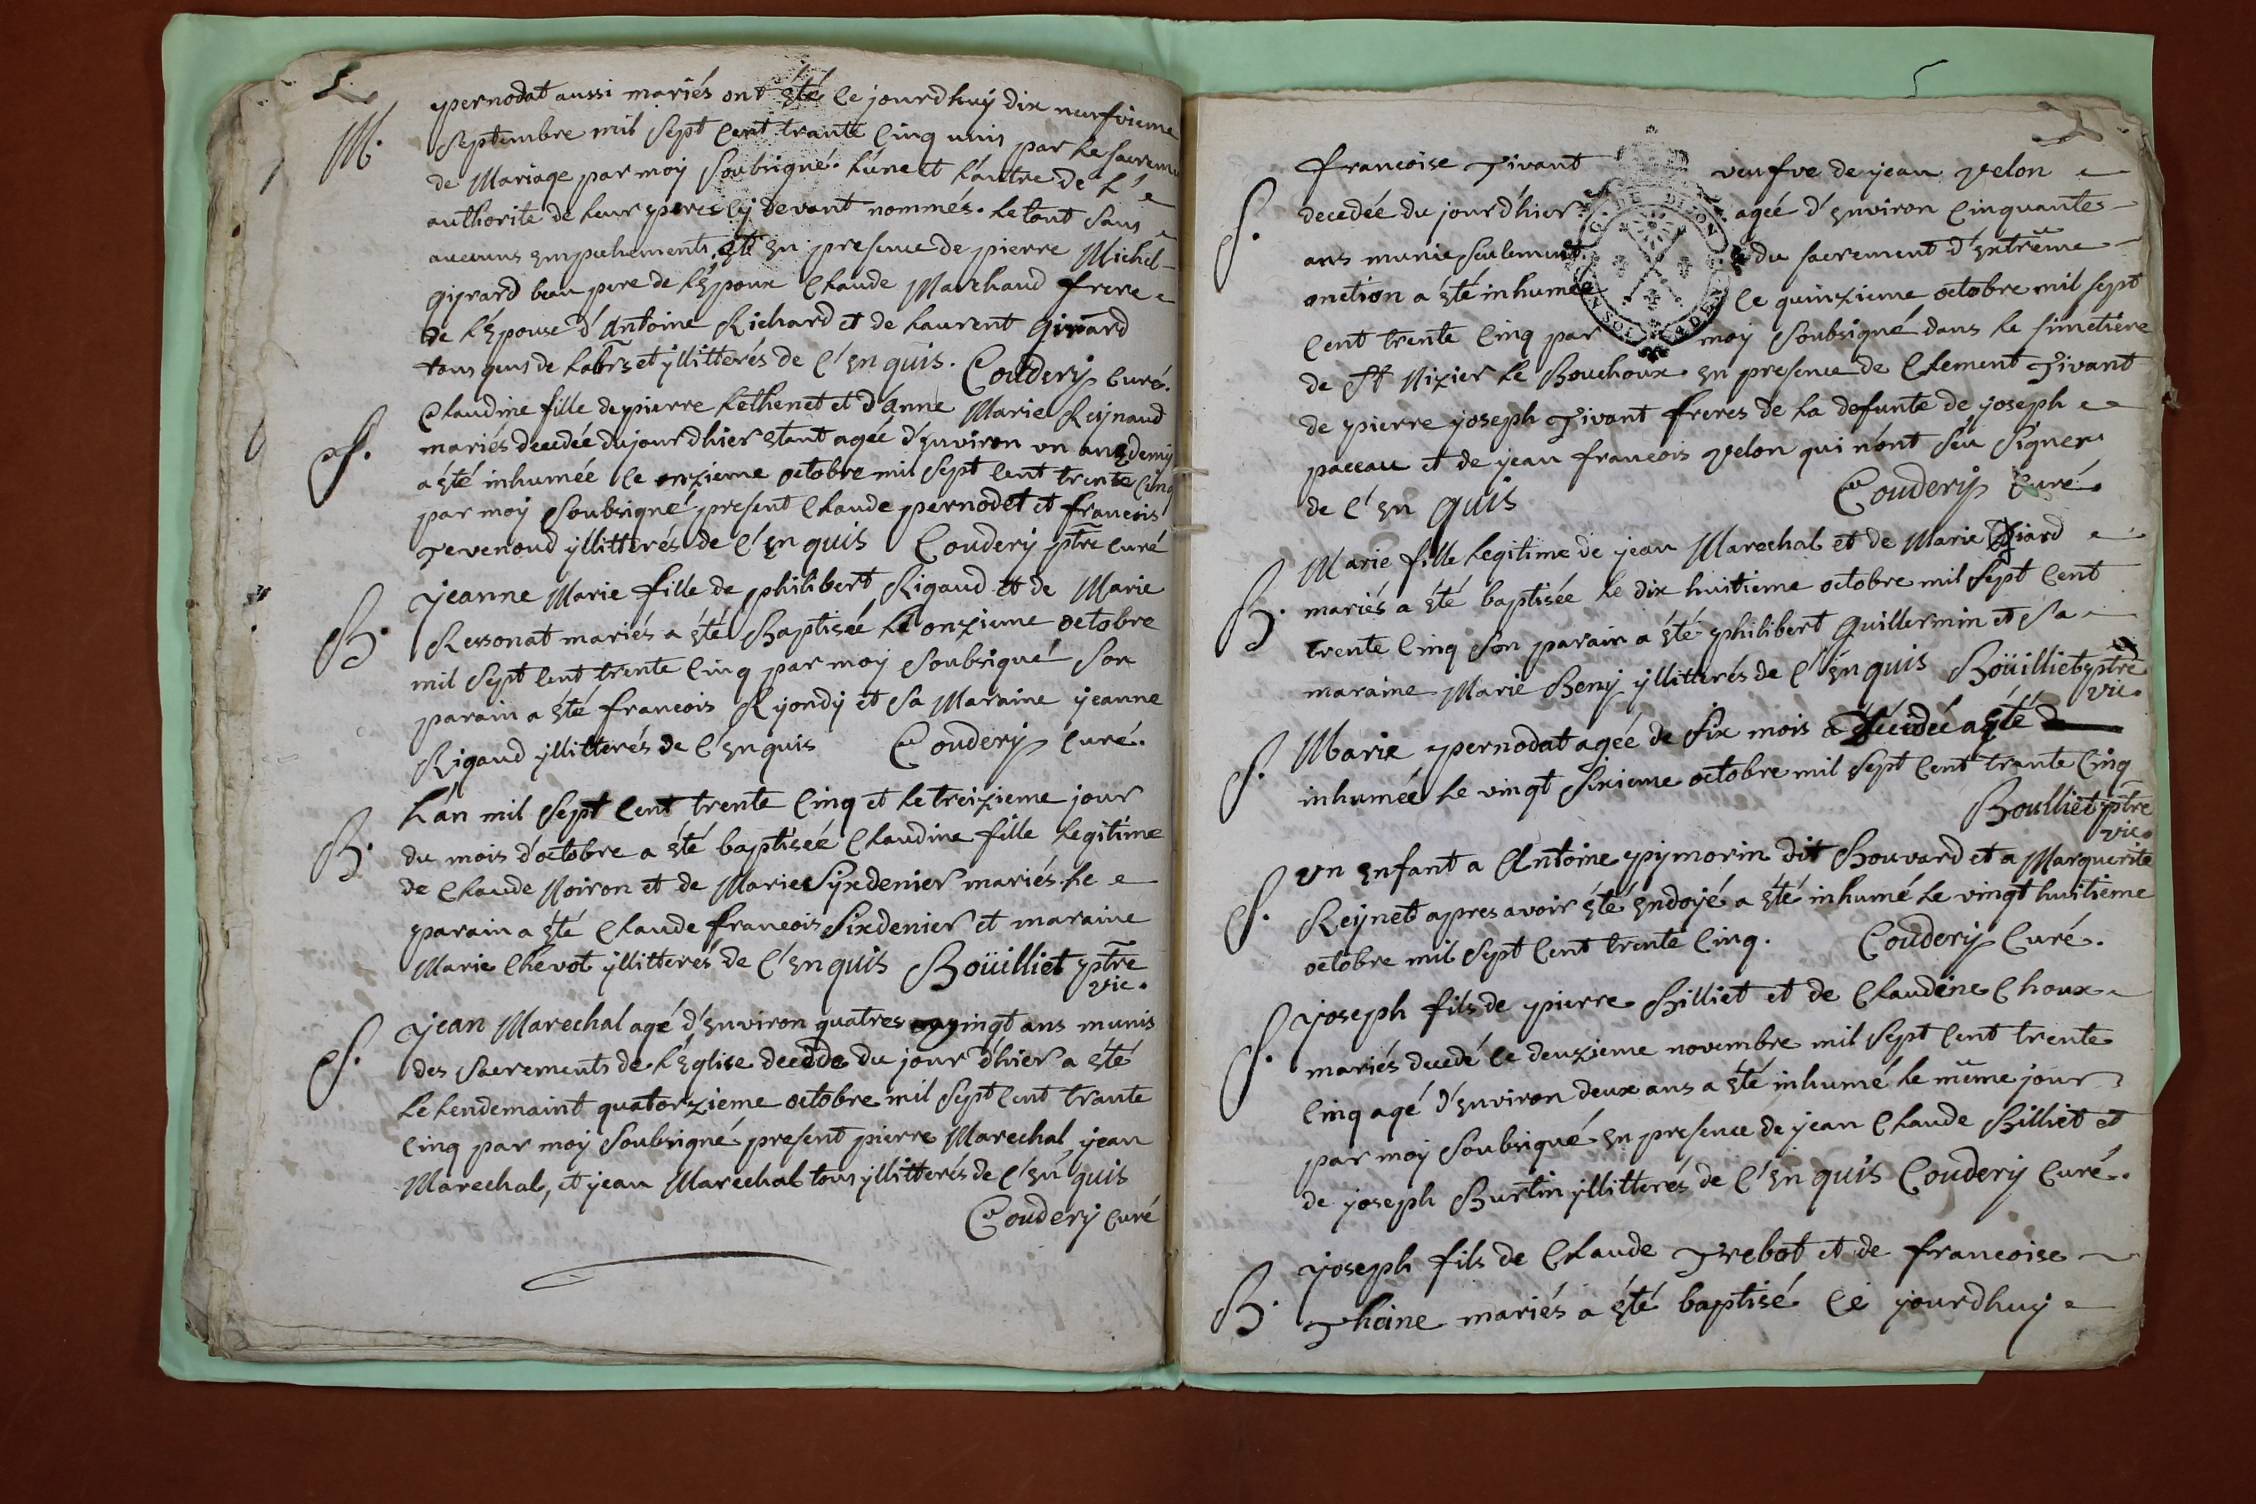 M.
pernodat aussi mariés ont été ce jourdhuy dix neufvieme
septembre mil sept cent trante cinq unis par le sacrem
de Mariage par moy soubsigné. l'une et l'autre de l'
authorite de leur peres cy devant nommés. le tout sans
aucuns empechements, été en presence de pierre Michel
Girard beau pere de l'Epoux Claude Marchand frere
de l'Epouse d'Antoine Richard et de Laurent Girard
tous gens de labrs et yllitterés de c'enquis. Coudery curé.
S.
Claudine fille de pierre Lethenet et d'Anne Marie Reynaud
mariés decedée du jourdhier etant agée d'environ un an et demy
a été inhumée ce onzieme octobre mil sept cent trente cinq
par moy soubsigné present Claude pernodet et francois
Tevenoud yllitterés de c'enquis Coudery ptre curé
B.
Jeanne Marie fille de philibert Rigaud et de Marie
Ressonat mariés a été Baptisée le onzieme octobre
mil sept cent trente cinq par moy soubsigné son
parain a été francois Ryondy et sa Maraine jeanne
Rigaud yllitterés de c'enquis Coudery curé.
B.
L'an mil sept cent trente cinq et le treizieme jour
du mois d'octobre a été baptiséé Claudine fille legitime
de Claude Noiron et de Marie Syxdenier mariés. le
parain a été Claude francois Sixdenier et maraine
Marie Chevot yllitterés de c'enquis Boüilliet ptre
vic.
S.
Jean Marechal agé d'environ quatres vingt ans munis
des sacrements de l'Eglise decede du jour d'hier a été
le lendemaint quatorzieme octobre mil sept cent trante
cinq par moy soubsigné present pierre Marechal, jean
Marechal, et jean Marechal tous yllitterés de c'enquis
Coudery curé
5
S.
francoise Tivant veufve de jean velon
decedée du jourdhier agéé d'environ cinquantes
ans munie seulement du sacrement d'extrême
onction a été inhumée ce quinzieme octobre mil sept
cent trente cinq par moy soubsigné dans le simetiere
de St Nizier le Bouchoux en presence de Clement Tivant
de pierre joseph Tivant freres de la defunte de joseph
paccau et de jean francois velon qui n'ont sçu signer
de c'enquis Coudery curé.
B.
Marie fille legitime de jean Marechal et de Marie
mariés a été baptisée le dix huitieme octobre mil sept cent
trente cinq son parain a été philibert Guillermin et sa
maraine Marie Beny yllitterés de c'enquis Boüilliet ptre
vic.
S.
Marie pernodat agéé de six mois décédéé a été
inhumée le vingt sixieme octobre mil sept cent trante cinq
Boulliet ptre
vic.
S.
un enfant a Antoine pymorin dit Bouvard et a Marguerite
Reynet apres avoir été endoyé a été inhumé le vingt huitieme
octobre mil sept cent trente cinq. Coudery Curé.
S.
Joseph fils de pierre Billiet et de Claudine Choux
mariés decedé ce deuzieme novembre mil sept cent trente
cinq agé d'environ deux ans a été inhumé le même jour
par moy soubsigné en presence de jean Claude Billiet et
de joseph Burtin yllitterés de c'enquis Coudery Curé.
B.
Joseph fils de Claude Trebot et de francoise
Thoine mariés a été baptisé ce jourdhuy